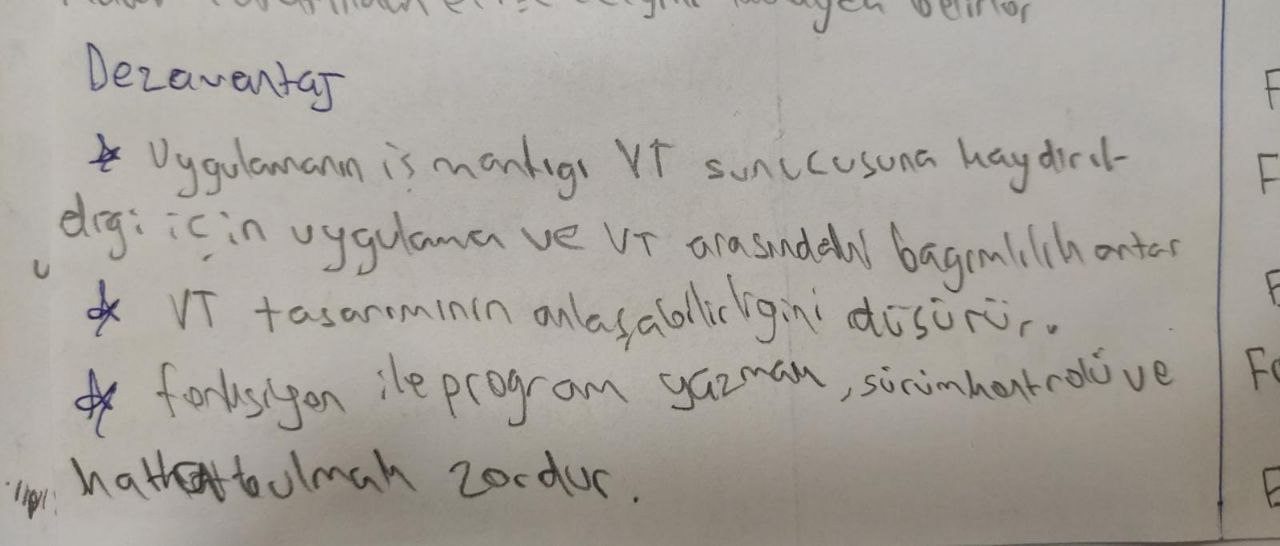 belirler
Dezavantaj
* Uygulamanın iş mantıgı VT sunucusuna kaydırıl-
dıgi için uygulama ve VT arasındaki bagımlılık artar
* VT tasarımının anlaşabilirligini düşürür.
* fonksiyon ile program yazmak, sürüm kontrolü ve
hata bulmak zordur.
F
F
F
Fo
E